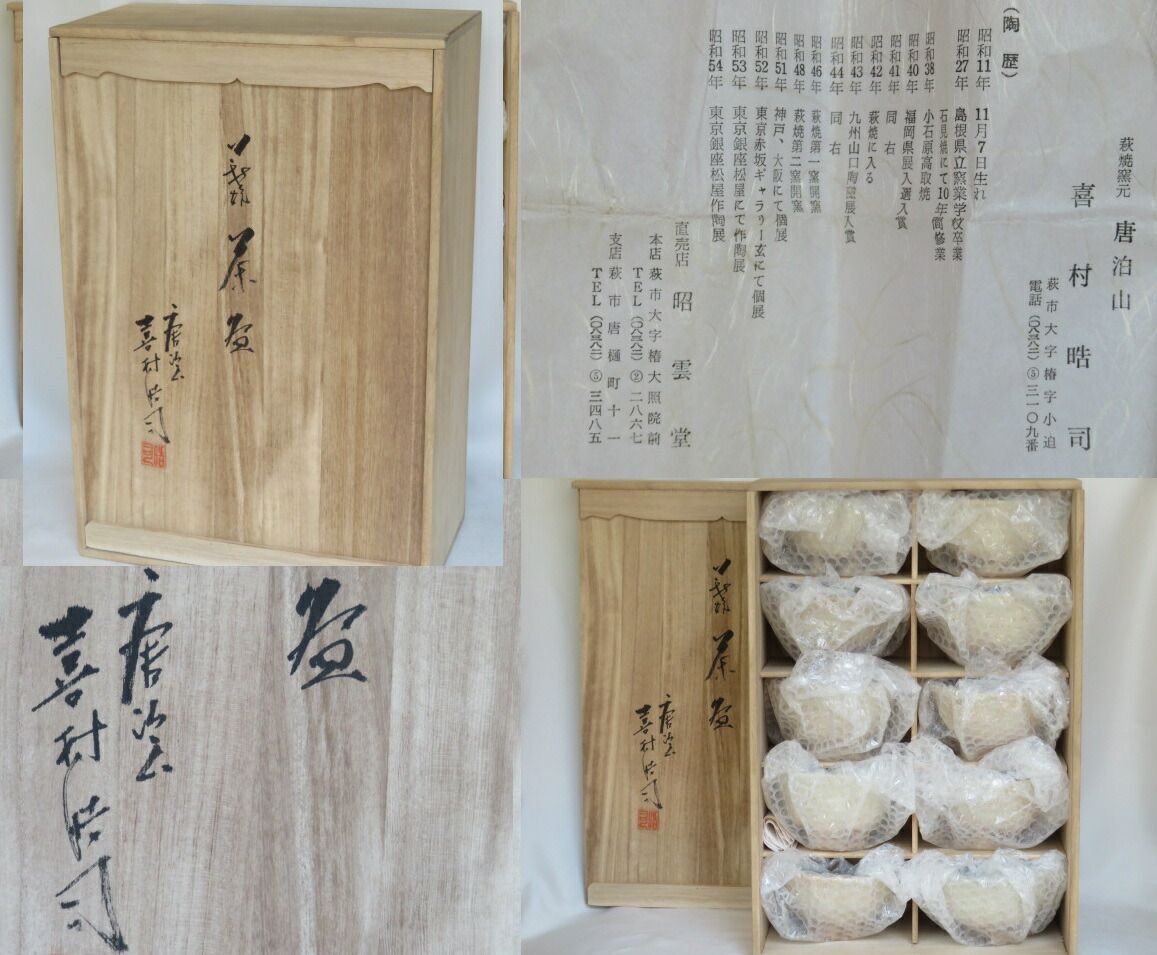 茶盌
唐泊山
喜村晧司
萩焼窯元 唐泊山
喜村晧司
萩市大字椿字小迫
電話(〇八三八二)⑤三一〇九番
(陶歴)
昭和11年 11月7日生れ
昭和27年 島根県立窯業学校卒業
石見焼にて10年間修業
昭和38年 小石原高取焼
昭和40年 福岡県展入選入賞
昭和41年 同右
昭和42年 萩焼に入る
昭和43年 九州山口陶磁展入賞
昭和44年 同右
昭和46年 萩焼第一窯開窯
昭和48年 萩焼第二窯開窯
昭和51年 神戸、大阪にて個展
昭和52年 東京赤坂ギャラリー玄にて個展
昭和53年 東京銀座松屋にて作陶展
昭和54年 東京銀座松屋作陶展
直売店 昭雲堂
本店 萩市大字椿大照院前
TEL(〇八三八二)②二八六七
支店 萩市唐樋町十一
TEL(〇八三八二)⑤三四八五
盌
唐泊山
喜村晧司
茶盌
唐泊山
喜村晧司